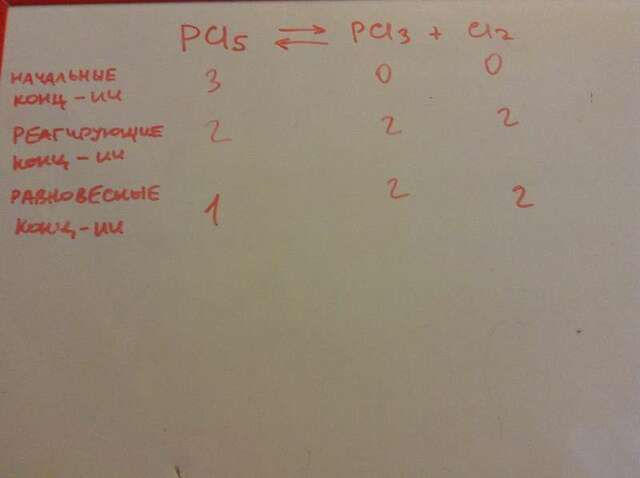 PCl5 ⇌ PCl3 + Cl2
НАЧАЛЬНЫЕ КОНЦ-ИИ 3 0 0
РЕАГИРУЮЩИЕ КОНЦ-ИИ 2 2 2
РАВНОВЕСНЫЕ КОНЦ-ИИ 1 2 2